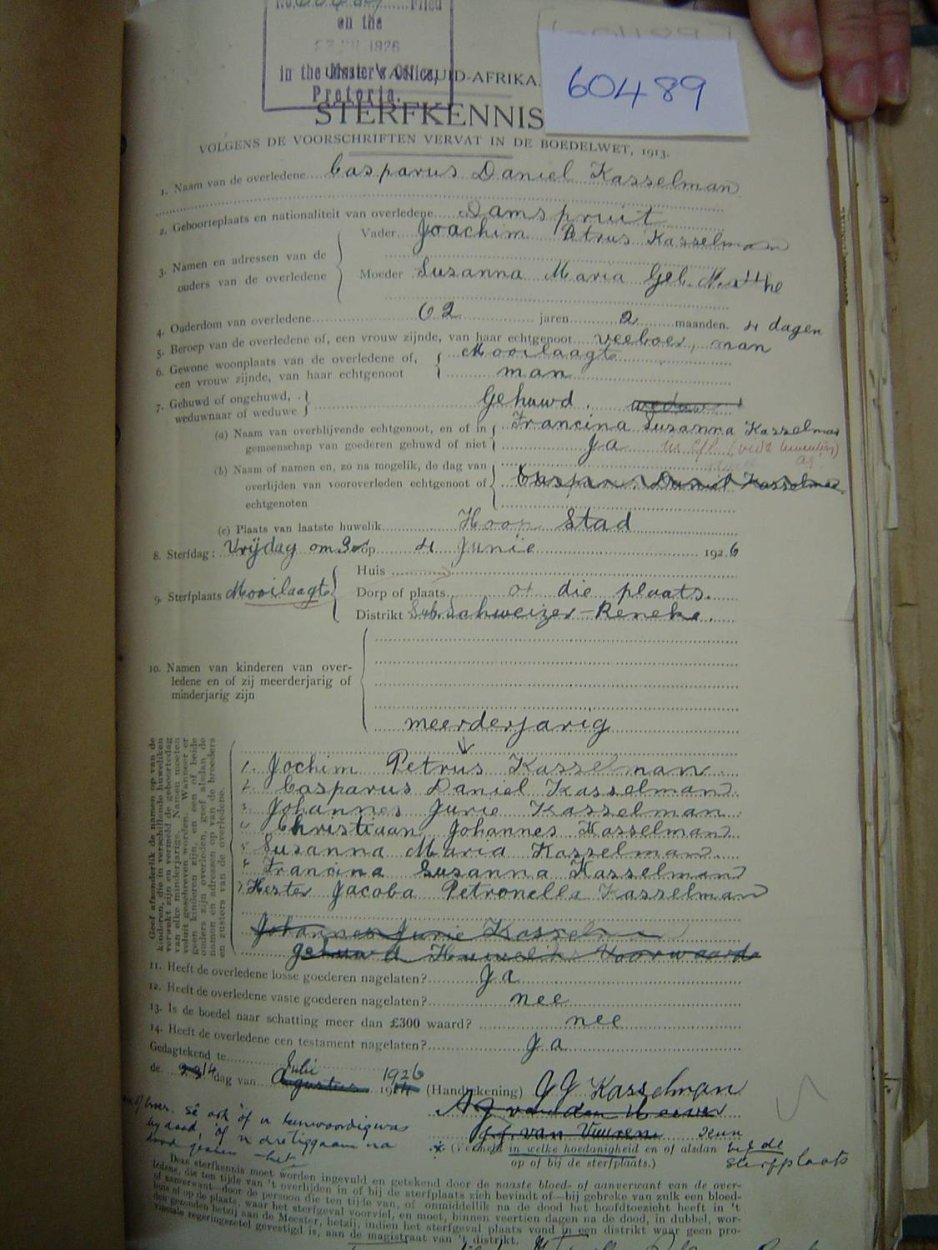 Filed
on the
1926
in the Master's Office,
Pretoria.
60489
UID-AFRIKA.
STERFKENNIS
VOLGENS DE VOORSCHRIFTEN VERVAT IN DE BOEDELWET, 1913.
1. Naam van de overledene Casparus Daniel Kasselman
2. Geboorteplaats en nationaliteit van overledene Damspruit
3. Namen en adressen van de ouders van de overledene
Vader Joachim Petrus Kasselman
Moeder Suzanna Maria Geb. Matthe
4. Ouderdom van overledene 62 jaren 2 maanden 4 dagen
5. Beroep van de overledene of, een vrouw zijnde, van haar echtgenoot veeboer, man
6. Gewone woonplaats van de overledene of, Mooilaagte
een vrouw zijnde, van haar echtgenoot man
7. Gehuwd of ongehuwd, Gehuwd.
weduwnaar of weduwe
(a) Naam van overblijvende echtgenoot, en of in Francina Suzanna Kasselman
gemeenschap van goederen gehuwd of niet Ja
(b) Naam of namen en, zo na mogelijk, de dag van
overlijden van vooroverleden echtgenoot of Casparus Daniel Kasselman
echtgenoten
(c) Plaats van laatste huwelik Hoop Stad
8. Sterfdag: Vrijdag om op 4 Junie 1926
9. Sterfplaats Mooilaagte
Huis
Dorp of plaats op die plaats.
Distrikt Schweizer-Reneke.
10. Namen van kinderen van over-
ledene en of zij meerderjarig of
minderjarig zijn
meerderjarig
1. Jochim Petrus Kasselman
2. Casparus Daniel Kasselman
3. Johannes Jurie Kasselman
4. Christiaan Johannes Kasselman
5. Suzanna Maria Kasselman
6. Francina Suzanna Kasselman
7. Hester Jacoba Petronella Kasselman
Geef afzonderlik de namen op van de
kinderen, die in verschillende huweliken
verwekt zijn en vermeld de geboortedag
van elke minderjarige. Namen moeten
voluit geschreven worden. Wanneer er
geen kinderen zijn, en een of beide
ouders zijn overleden, geef alsdan de
namen en adressen op van de broeders
en zusters van de overledene.
Johannes Jurie Kasselm
11. Heeft de overledene losse goederen nagelaten? Ja
12. Heeft de overledene vaste goederen nagelaten? nee
13. Is de boedel naar schatting meer dan £300 waard? nee
14. Heeft de overledene een testament nagelaten? Ja
Gedagtekend te
de 14 dag van Julie 1926 (Handtekening) Kasselman
van den
van Vuuren seun
in welke hoedanigheid en of alsdan bij de
op of bij de sterfplaats.) sterfplaats
Deze sterfkennis moet worden ingevuld en getekend door de naaste bloed- of aanverwant van de over-
ledene, die ten tijde van 't overlijden in of bij de sterfplaats zich bevindt of—bij gebreke van zulk een bloed-
of aanverwant—door de persoon die ten tijde van, of onmiddellik na de dood het hoofdtoezicht heeft in 't
huis of op de plaats, waar het sterfgeval voorviel, en moet, binnen veertien dagen na de dood, in dubbel, wor-
den gezonden hetzij aan de Meester, hetzij, indien het sterfgeval plaats vond in een distrikt waar geen pro-
vinciale regeringzetel gevestigd is, aan de magistraat van 't distrikt.